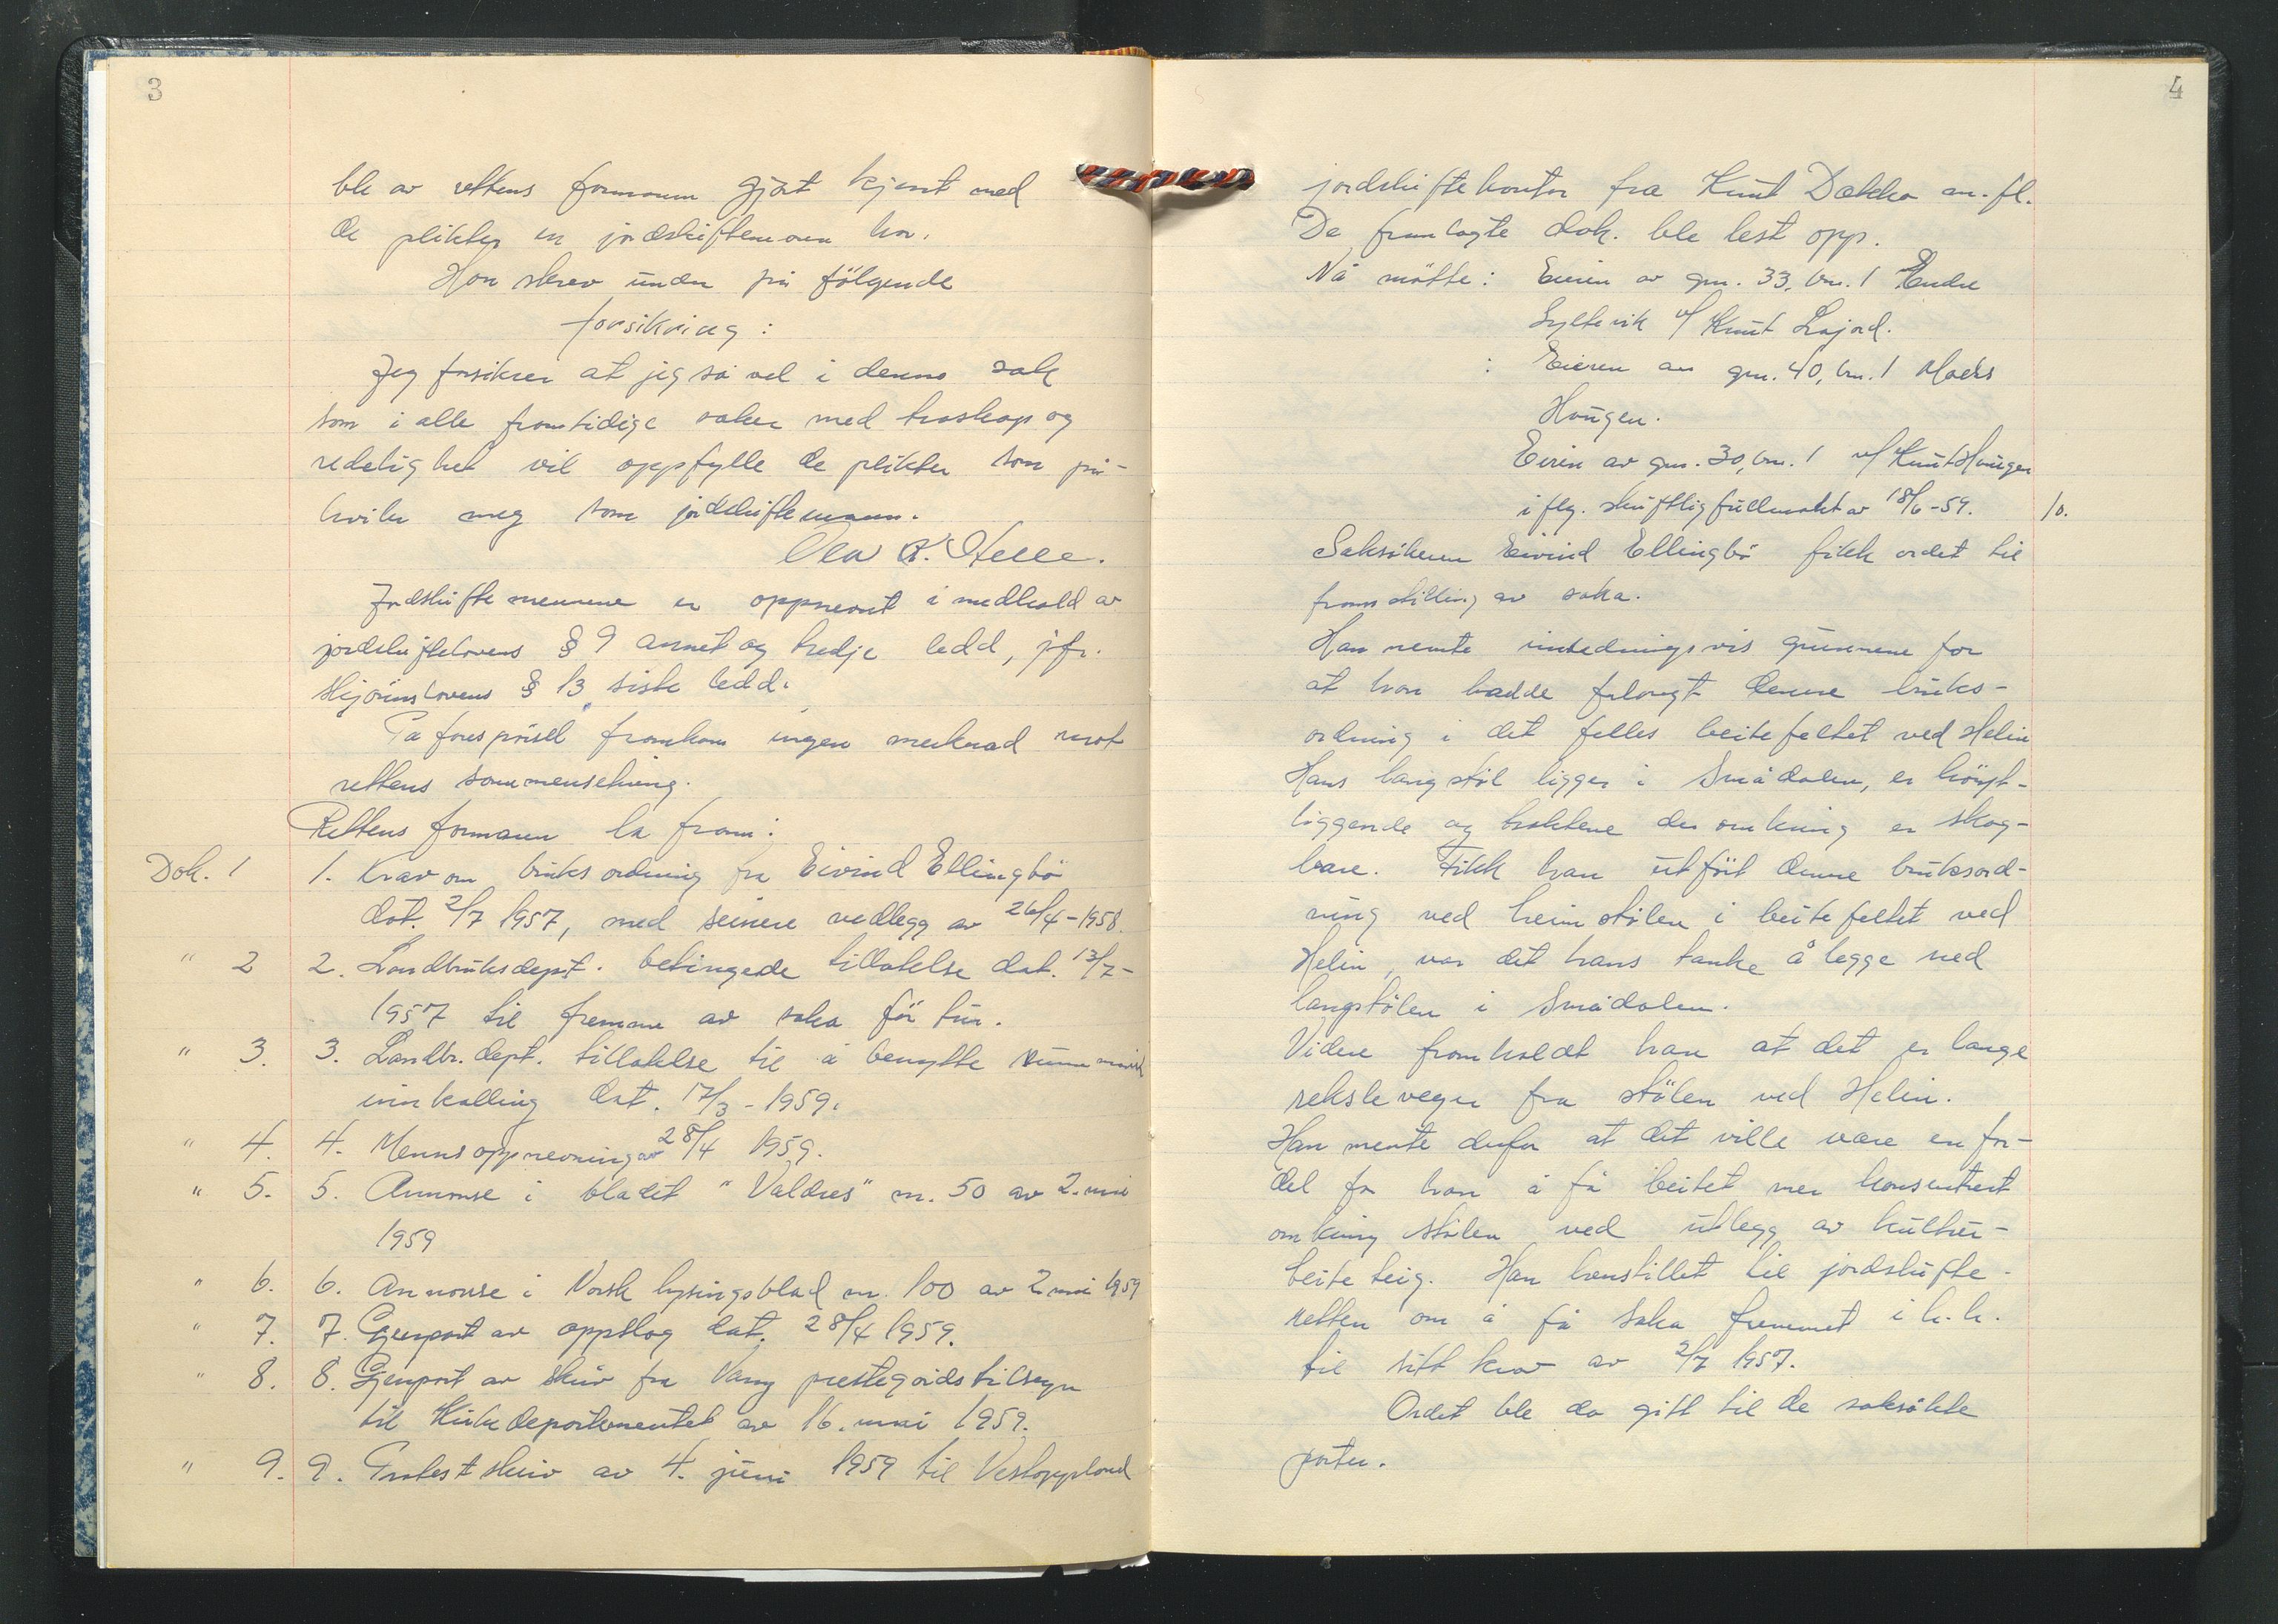 3
ble av rettens formann gjort kjent med
de plikter en jordskiftemann har.
Han skrev under på følgende
forsikring:
Jeg forsikrer at jeg så vel i denne sak
som i alle framtidige saker med troskap og
redelighet vil oppfylle de plikter som på-
hviler meg som jordskiftemann.
Ola K. Helle.
Jordskiftemennene er oppnevnt i medhold av
jordskiftelovens § 9 annet og tredje ledd, jfr.
skjønnslovens § 13 siste ledd.
På forespørsel framkom ingen merknad mot
rettens sammensetning.
Rettens formann la fram:
Dok. 1 1. Krav om bruksordning fra Eivind Ellingbö
dat. 2/7 1957, med seinere vedlegg av 26/4-1958.
" 2 2. Landbruksdept. betingede tillatelse dat. 13/7-
1957 til fremme av saka før tur.
" 3. 3. Landbr.dept. tillatelse til å benytte summarisk
innkalling dat. 17/3-1959.
" 4. 4. Mennsoppnevning av 28/4 1959.
" 5. 5. Annonse i bladet "Valdres" nr. 50 av 2. mai
1959
" 6. 6. Annonse i Norsk lysingsblad nr. 100 av 2. mai 1959
" 7. 7. Gjenpart av oppslag dat. 28/4 1959.
" 8. 8. Gjenpart av skriv fra Vang prestegårdstilsyn
til Kirkedepartementet av 16. mai 1959.
" 9. 9. Protestskriv av 4. juni 1959 til Vestoppland
4
jordskiftekontor fra Knut Dokka m.fl.
De framlagte dok. ble lest opp.
Nå møtte: Eieren av gnr. 33, bnr. 1 Endre
Sylte vik v/ Knut Lajord.
: Eieren av gnr. 40, bnr. 1 Mads
Haugen.
Eieren av gnr. 30, bnr. 1 v/ Knut Haugen
iflg. skriftlig fullmakt av 18/6-59. 10.
Saksøkeren Eivind Ellingbö fikk ordet til
framstilling av saka.
Han nevnte innledningsvis grunnene for
at han hadde forlangt denne bruks-
ordning i det felles beitefeltet ved Helin
Hans langstøl ligger i Smådalen, er høgt-
liggende og traktene der omkring er skog-
bare. Fikk han utført denne bruksord-
ning ved heimstølen i beitefeltet ved
Helin, var det hans tanke å legge ned
langstølen i Smådalen.
Videre framholdt han at det er lange
reksleveger fra stølen ved Helin.
Han mente derfor at det ville være en for-
del for han å få beitet mer konsentrert
omkring stølen ved utlegg av kultur-
beiteteig. Han henstillet til jordskifte-
retten om å få saka fremmet i h.h.
til sitt krav av 2/7 1957.
Ordet ble da gitt til de saksøkte
parter.